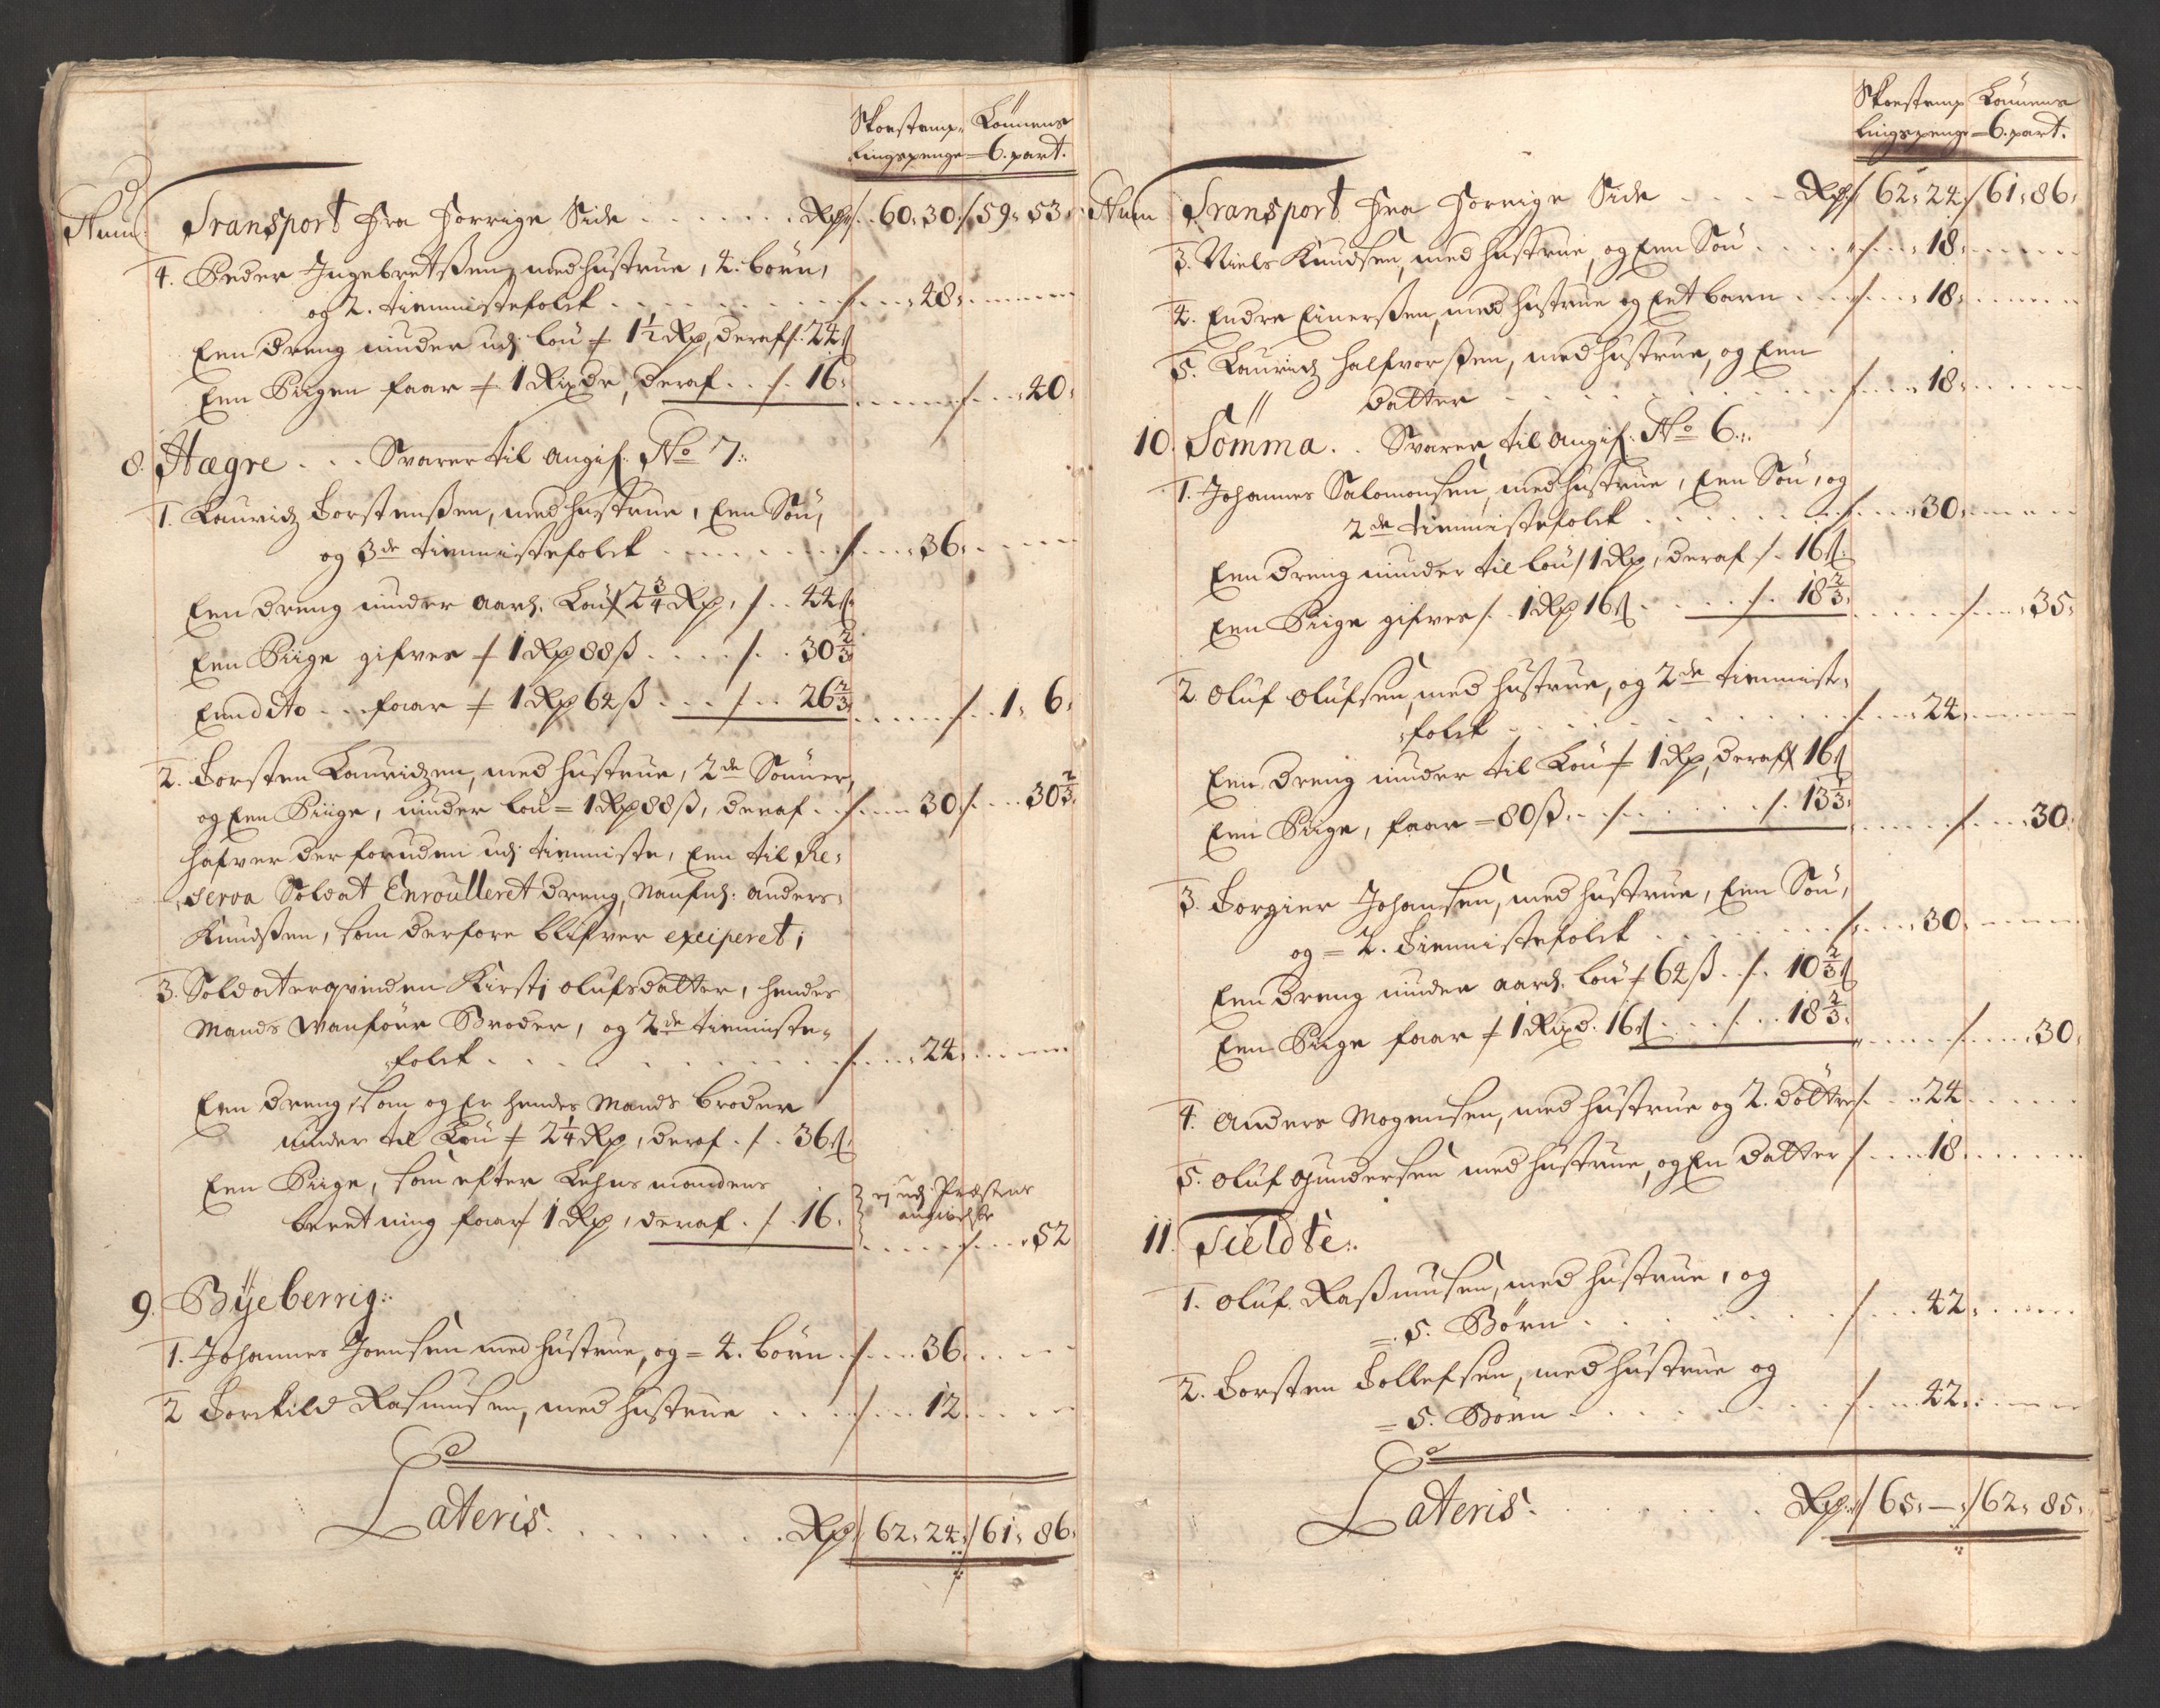 Skoestemp- Lönnens
lingspenge 6. part.
Num Transport fra Forrige Side . . . . . . . Rd 60. 30. / 59. 53.
4. Peder Ingebretßen, med hustrue, 4. börn,
og 2. tiennistefolck . . . . . . . / . . . 48. . . . .
Een Dreng niuder udj lön / 1½ Rd, deraf /. 24 ß
Een Piigen faar / 1 Rixdr, deraf . . / . 16. . . . . . / . . . 40.
8. Hægre . . . Svarer til Angif. No 7.
1. Lauridz Torstenßen, med hustrue, Een Sön,
og 3de tiennistefolck . . . . . . . / . . . 36. . . . .
Een Dreng niuder aarl. Lön / 2¾ Rd, /. . 44 ß
Een Piige gifves / 1 Rd 88 ß . . . . / . . 30⅔
Een dito . . . faar / 1 Rd 64 ß . . . / . . 26⅔ . . . . . / . . 1. 6.
2. Torsten Lauridzen, med hustrue, 2de Sönner,
og Een Piige, niuder lön = 1 Rd 88 ß, deraf . . / . . . 30. / . . . 30⅔.
hafver der foruden udj tienniste, Een til Re-
serva Soldat Enroulleret Dreng, Naufnl. Anders
Knudßen, som derfore blifver exciperet;
3. Soldaterqvinden Kirstj Olufsdatter, hendes
Mands Vanföre Broder, og 2de tienniste-
folck . . . . . . . . . . . / . . . 24. . . . .
Een Dreng, som og Er hendes Mands broder
niuder til Lön / 2¼ Rd, deraf . / . 36 ß
Een Piige, som efter Lehnsmandens
beretning faar / 1 Rd, deraf . / . 16. ej udj Præstens
angivelse
. . . . . / . . . 52
9. Byeberrig.
1. Johannes Joensen med hustrue, og = 4. börn . / . . . 36. . . . .
2 Torckild Rasmusen, med hustrue . . . . / . . . 12. . . . .
Lateris . . . . . . . . Rd / 62. 24. / 61. 86.
Skoestemp Lönnens
lingspenge 6. part.
Num Transport fra Forrige Side . . . . Rd / 62. 24. / 61. 86.
3. Niels Knudsen, med hustrue, og Een Sön . . . . / . . . 18. . . . .
4. Endre Einerßen, med hustrue og Eet barn . . . / . . . 18. . . . .
5. Lauridz Halfvorßen, med hustrue, og Een
datter . . . . . . . . . . / . . . 18. . . . .
10. Sömma. . Svarer til Angif. No 6.
1. Johannes Salomonsen, med hustrue, Een Sön, og
2de tiennistefolck . . . . . . . / . . . 30. . . . .
Een Dreng niuder til lön / 1 Rd, deraf /. 16 ß
Een Piige gifves / . 1 Rd 16 ß . . . . . / . 18⅔ . . . . . / . . . 35.
2. Oluf Olufsen, med hustrue, og 2de tienniste-
folck . . . . . . . . . . / . . . 24. . . . .
Een Dreng niuder til Lön / 1 Rd, deraf / 16 ß
Een Piige, faar = 80 ß . . / . . . . . / . 13⅓ . . . . . / . . . 30.
3. Torgier Johansen, med hustrue, Een Sön,
og = 2. Tiennistefolck . . . . . . . / . . . 30. . . . .
Een Dreng niuder aarl. lön / 64 ß . / . 10⅔ ß
Een Piige faar / 1 Rixd. 16 ß . . . / . . 18⅔ . . . . . / . . . 30.
4. Anders Mogensen, med hustrue og 2. döttre / . . . 24 . . . . .
5. Oluf Gundersen med hustrue, og En datter / . . . 18 . . . . .
11. Tieldte.
1. Oluf Raßmusen, med hustrue, og
= 5. Börn . . . . . . . . / . . . 42. . . . .
2. Torsten Tollefsen, med hustrue og
= 5. Börn . . . . . . . . / . . . 42. . . . .
Lateris . . . . . . . Rd / 65. — . / 62. 85.